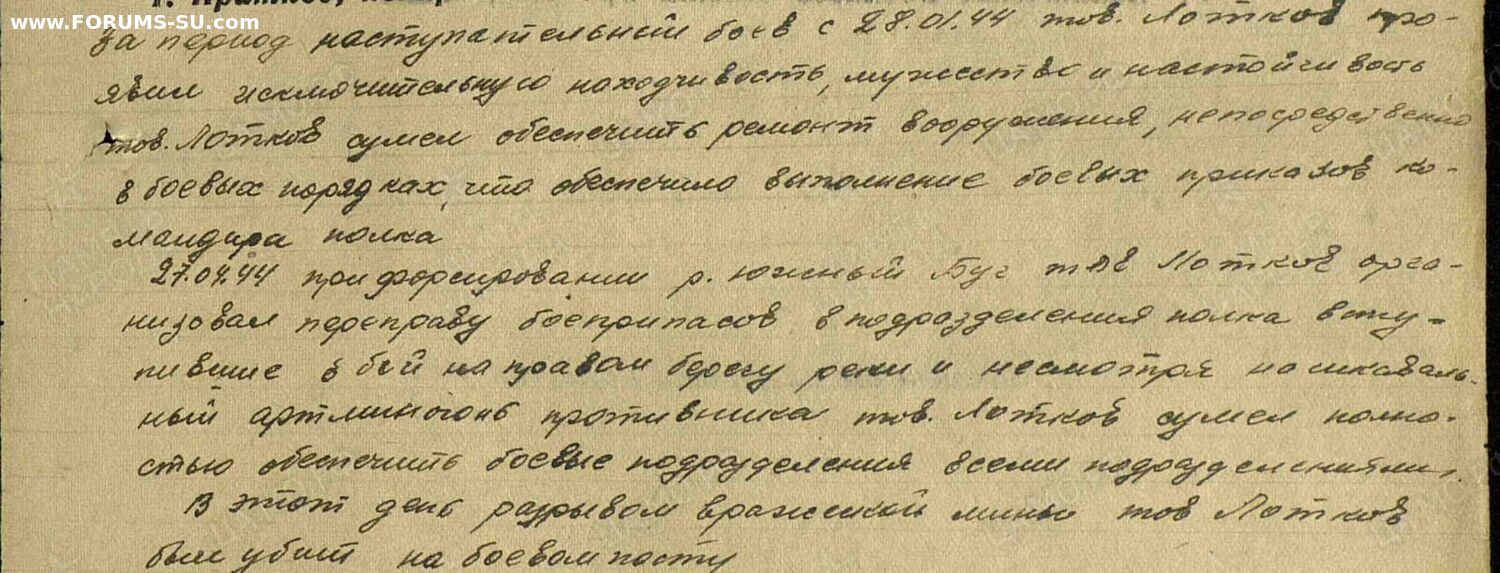 www.FORUMS-SU.com
за период наступательный боев с 28.01.44 тов. Лотков про-
явил исключительную находчивость, мужество и настойчивость
тов. Лотков сумел обеспечить ремонт вооружения, непосредственно
в боевых порядках, что обеспечило выполнение боевых приказов ко-
мандира полка
при форсировании р. Южный Буг тов Лотков орга-
низовал переправу боеприпасов в подразделения полка всту-
пившие в бой на правом берегу реки и несмотря на шкваль-
ный артминогонь противника тов. Лотков сумел полно-
стью обеспечить боевые подразделения всеми подразделениями.
В этот день разрывом вражеской мины тов Лотков
был убит на боевом посту